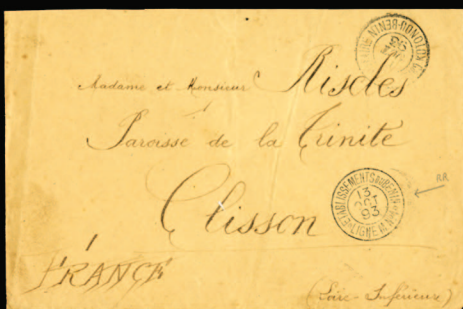 KOTONOU-BENIN
93
Madame et Monsieur Riscles
Paroisse de la Trinité
Clisson
ETABLISSEMENTS DU BENIN
13
OCT
93
LIGNE
RR
FRANCE
(Loire-Inférieure)